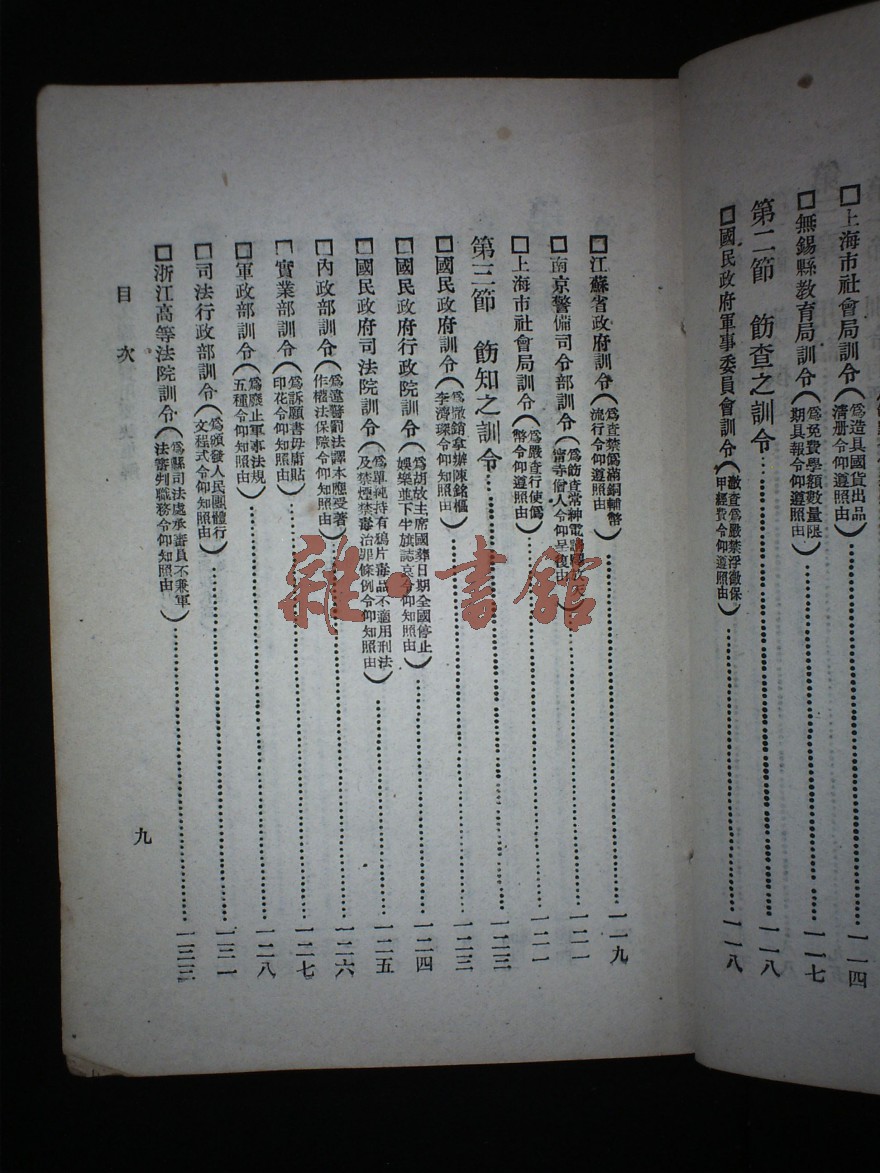 □上海市社會局訓令(爲造具國貨出品清册令仰遵照由)……一一四
□無錫縣教育局訓令(爲免費學額數量限期具報令仰遵照由)……一一七
第二節 飭查之訓令……一一八
□國民政府軍事委員會訓令(徹查爲嚴禁浮徵保甲經費令仰遵照由)……一一八
□江蘇省政府訓令(爲查禁僞滿銅輔幣流行令仰遵照由)……一一九
□南京警備司令部訓令(爲飭查常紳電請寺僧人令仰呈復由)……一二一
□上海市社會局訓令(爲嚴查行使僞幣令仰遵照由)……一二一
第三節 飭知之訓令……一二三
□國民政府訓令(爲撤銷拿辦陳銘樞李濟琛令仰知照由)……一二三
□國民政府行政院訓令(爲胡故主席國葬日期全國停止娛樂並下半旗誌哀令仰知照由)……一二四
□國民政府司法院訓令(爲單純持有鴉片毒品不適用刑法及禁煙禁毒治罪條例令仰知照由)……一二五
□內政部訓令(爲違警罰法譯本應受著作權法保障令仰知照由)……一二六
□實業部訓令(爲訴願書毋庸貼印花令仰知照由)……一二七
□軍政部訓令(爲廢止軍事法規五種令仰知照由)……一二八
□司法行政部訓令(爲頒發人民團體行文程式令仰知照由)……一三一
□浙江高等法院訓令(爲縣司法處承審員不兼軍法審判職務令仰知照由)……一三三
目次
九
雜·書館